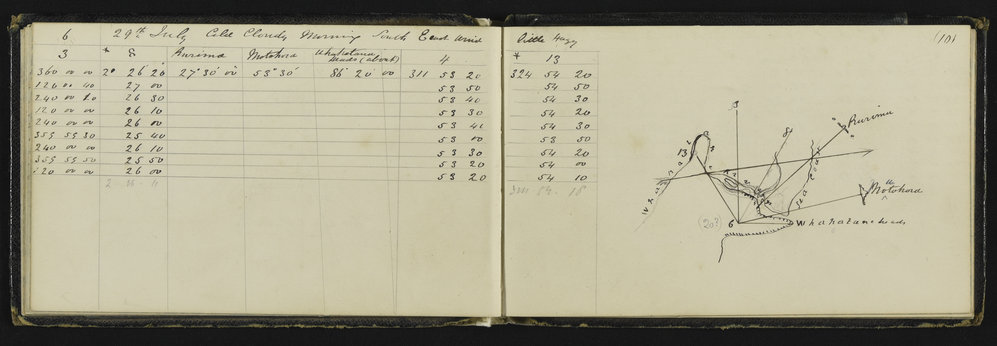 6 29th July Cold Cloudy Morning South East Wind little Hazy (10)
3 * 8 Rurima Motohora Whakatane heads (about) 4 * 13
360 00 00 2° 26 20 27° 30 00 53° 30 86 20 00 311 53 20 324 54 20
120 00 40 27 00 53 50 54 50
240 00 20 26 30 53 40 54 30
120 00 00 26 10 53 30 54 20
240 00 00 26 00 53 40 54 30
359 59 30 25 40 53 00 53 50
240 00 00 26 10 53 30 54 20
359 59 50 25 50 53 20 54 00
120 00 00 26 00 53 20 54 10
3
8
Rurima
13
4
Motohora
6
Whakatane heads